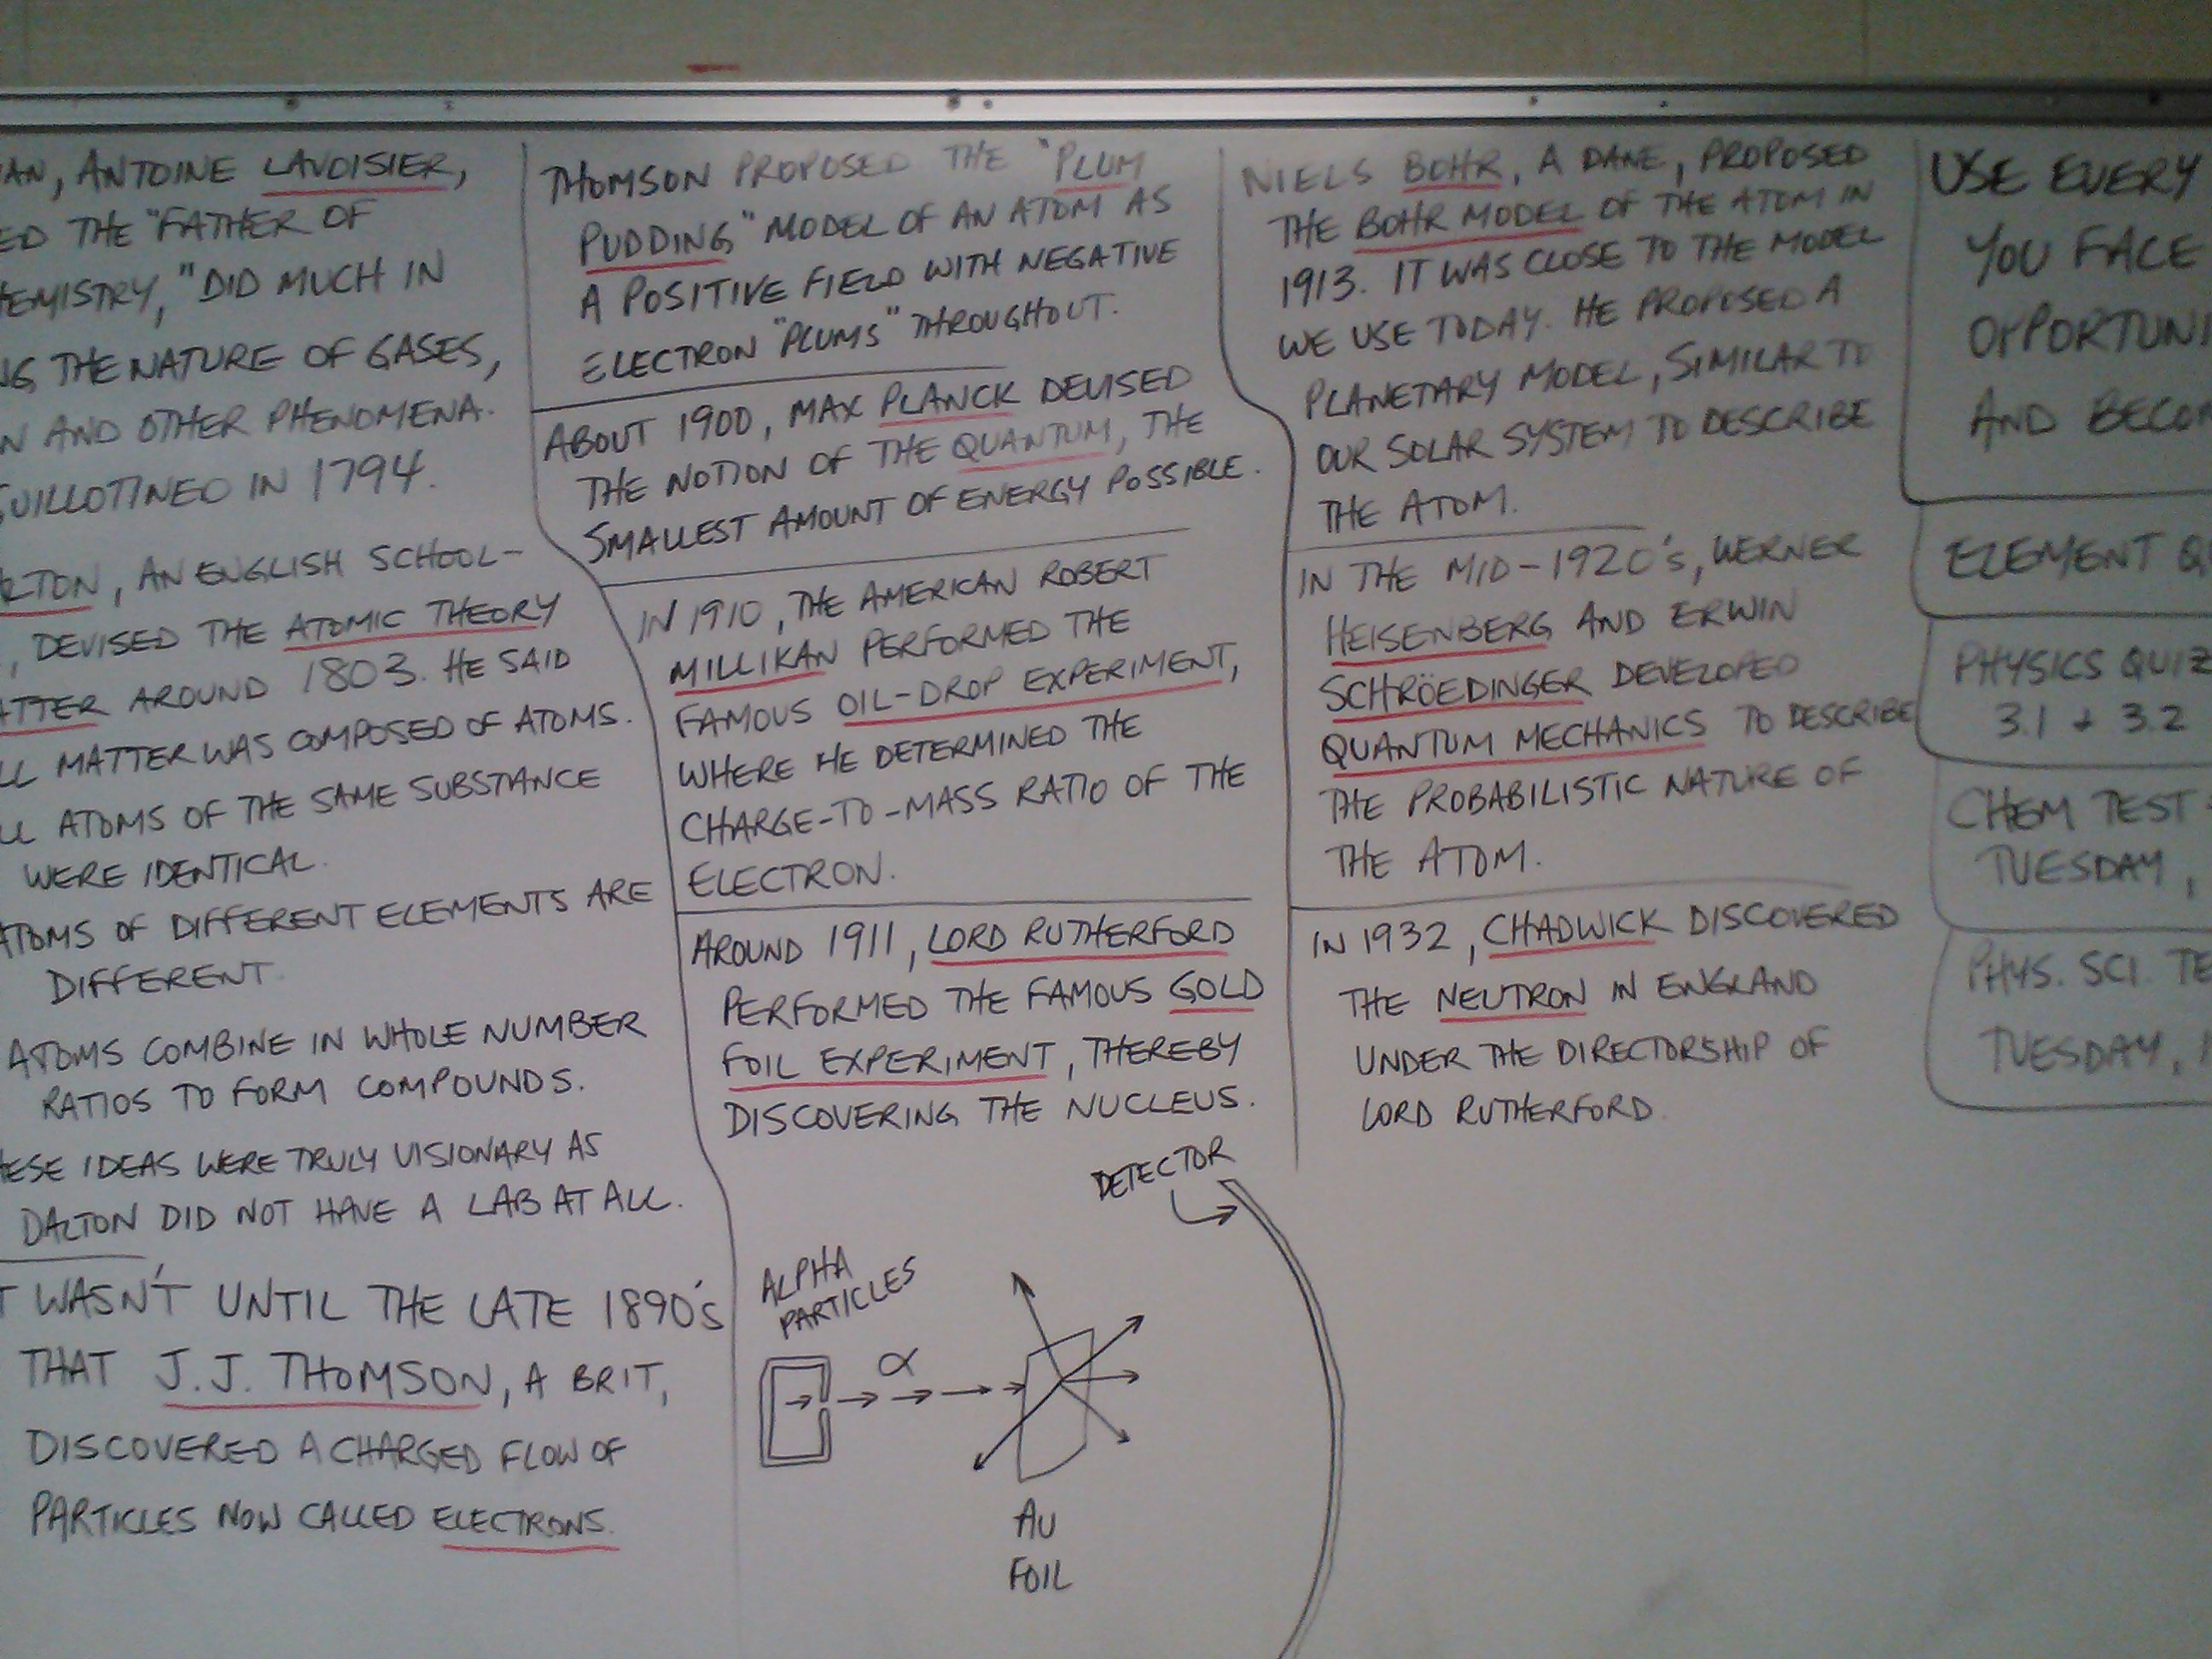 AN, ANTOINE LAVOISIER,
ED THE "FATHER OF
HEMISTRY," DID MUCH IN
NG THE NATURE OF GASES,
N AND OTHER PHENOMENA.
GUILLOTINED IN 1794.
ALTON, AN ENGLISH SCHOOL-
, DEVISED THE ATOMIC THEORY
ATTER AROUND 1803. HE SAID
LL MATTER WAS COMPOSED OF ATOMS.
LL ATOMS OF THE SAME SUBSTANCE
WERE IDENTICAL.
ATOMS OF DIFFERENT ELEMENTS ARE
DIFFERENT.
ATOMS COMBINE IN WHOLE NUMBER
RATIOS TO FORM COMPOUNDS.
HESE IDEAS WERE TRULY VISIONARY AS
DALTON DID NOT HAVE A LAB AT ALL.
T WASN'T UNTIL THE LATE 1890's
THAT J.J. THOMSON, A BRIT,
DISCOVERED A CHARGED FLOW OF
PARTICLES NOW CALLED ELECTRONS.
THOMSON PROPOSED THE "PLUM
PUDDING" MODEL OF AN ATOM AS
A POSITIVE FIELD WITH NEGATIVE
ELECTRON "PLUMS" THROUGHOUT.
ABOUT 1900, MAX PLANCK DEVISED
THE NOTION OF THE QUANTUM, THE
SMALLEST AMOUNT OF ENERGY POSSIBLE.
IN 1910, THE AMERICAN ROBERT
MILLIKAN PERFORMED THE
FAMOUS OIL-DROP EXPERIMENT,
WHERE HE DETERMINED THE
CHARGE-TO-MASS RATIO OF THE
ELECTRON.
AROUND 1911, LORD RUTHERFORD
PERFORMED THE FAMOUS GOLD
FOIL EXPERIMENT, THEREBY
DISCOVERING THE NUCLEUS.
DETECTOR
ALPHA
PARTICLES
α
AU
FOIL
NIELS BOHR, A DANE, PROPOSED
THE BOHR MODEL OF THE ATOM IN
1913. IT WAS CLOSE TO THE MODEL
WE USE TODAY. HE PROPOSED A
PLANETARY MODEL, SIMILAR TO
OUR SOLAR SYSTEM TO DESCRIBE
THE ATOM.
IN THE MID-1920's, WERNER
HEISENBERG AND ERWIN
SCHRÖEDINGER DEVELOPED
QUANTUM MECHANICS TO DESCRIBE
THE PROBABILISTIC NATURE OF
THE ATOM.
IN 1932, CHADWICK DISCOVERED
THE NEUTRON IN ENGLAND
UNDER THE DIRECTORSHIP OF
LORD RUTHERFORD.
USE EVERY
YOU FACE
OPPORTUNI
AND BECOM
ELEMENT QU
PHYSICS QUIZ
3.1 + 3.2
CHEM TEST
TUESDAY,
PHYS. SCI. TE
TUESDAY, 1